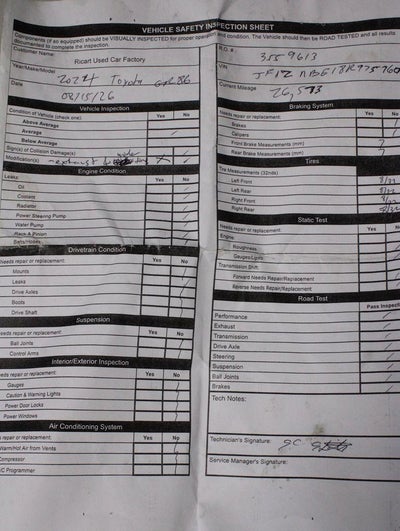 VEHICLE SAFETY INSPECTION SHEET
Components (if so equipped) should be VISUALLY INSPECTED for proper operation and condition. The Vehicle should then be ROAD TESTED and all results
documented to complete the inspection.
Customer Name:
Ricart Used Car Factory
Year/Make/Model
2024 Toyota GR86
Date
03/15/26
R.O. #:
3559613
VIN
Current Mileage
26,573
Vehicle Inspection
Condition of Vehicle (check one) Yes No
Above Average
Average
Below Average
Sign(s) of Collision Damage(s)
Modification(s) exhaust
Engine Condition
Leaks Yes No
Oil
Coolant
Radiator
Power Steering Pump
Water Pump
Rack & Pinion
Belts/Hoses
Drivetrain Condition
Needs repair or replacement: Yes No
Mounts
Leaks
Drive Axles
Boots
Drive Shaft
Suspension
eeds repair or replacement: Yes No
Ball Joints
Control Arms
Interior/Exterior Inspection
eeds repair or replacement: Yes No
Gauges
Caution & Warning Lights
Power Door Locks
Power Windows
Air Conditioning System
repair or replacement: Yes No
m/Hot Air from Vents
Compressor
/C Programmer
Braking System
Needs repair or replacement: Yes No
Brakes
Calipers
Front Brake Measurements (mm) 7
Rear Brake Measurements (mm) 7
Tires
Tire Measurements (32nds)
Left Front 8/32
Left Rear 8/32
Right Front 8/32
Right Rear 8/32
Static Test
Needs repair or replacement: Yes No
Engine:
Roughness
Gauges/Lights
Transmission Shift:
Forward Needs Repair/Replacement
Reverse Needs Repair/Replacement
Road Test
Pass Inspecti
Performance
Exhaust
Transmission
Drive Axle
Steering
Suspension
Ball Joints
Brakes
Tech Notes:
Technician's Signature: JC
Service Manager's Signature: